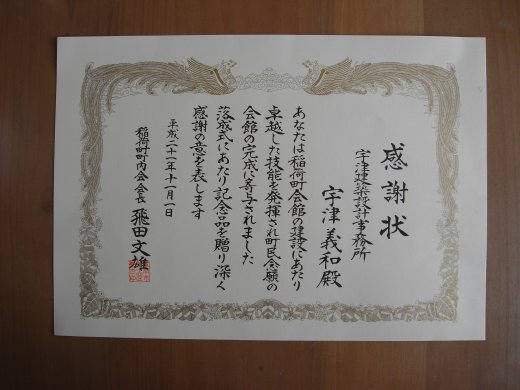 感謝状
宇津建築設計事務所
宇津義和殿
あなたは稲荷町会館の建設にあたり
卓越した技能を発揮され町民念願の
会館の完成に寄与されました
落成式にあたり記念品を贈り深く
感謝の意を表します
平成二十一年十一月一日
稲荷町町内会会長 飛田文雄